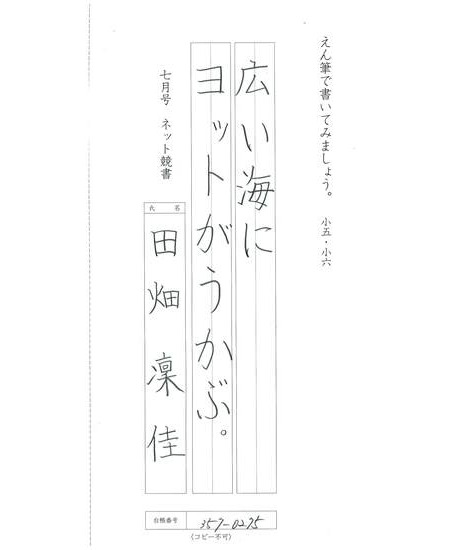 えん筆で書いてみましょう。 小五・小六
広い海に
ヨットがうかぶ。
七月号 ネット競書
氏 名
田畑 凜佳
台帳番号 357-0275
(コピー不可)